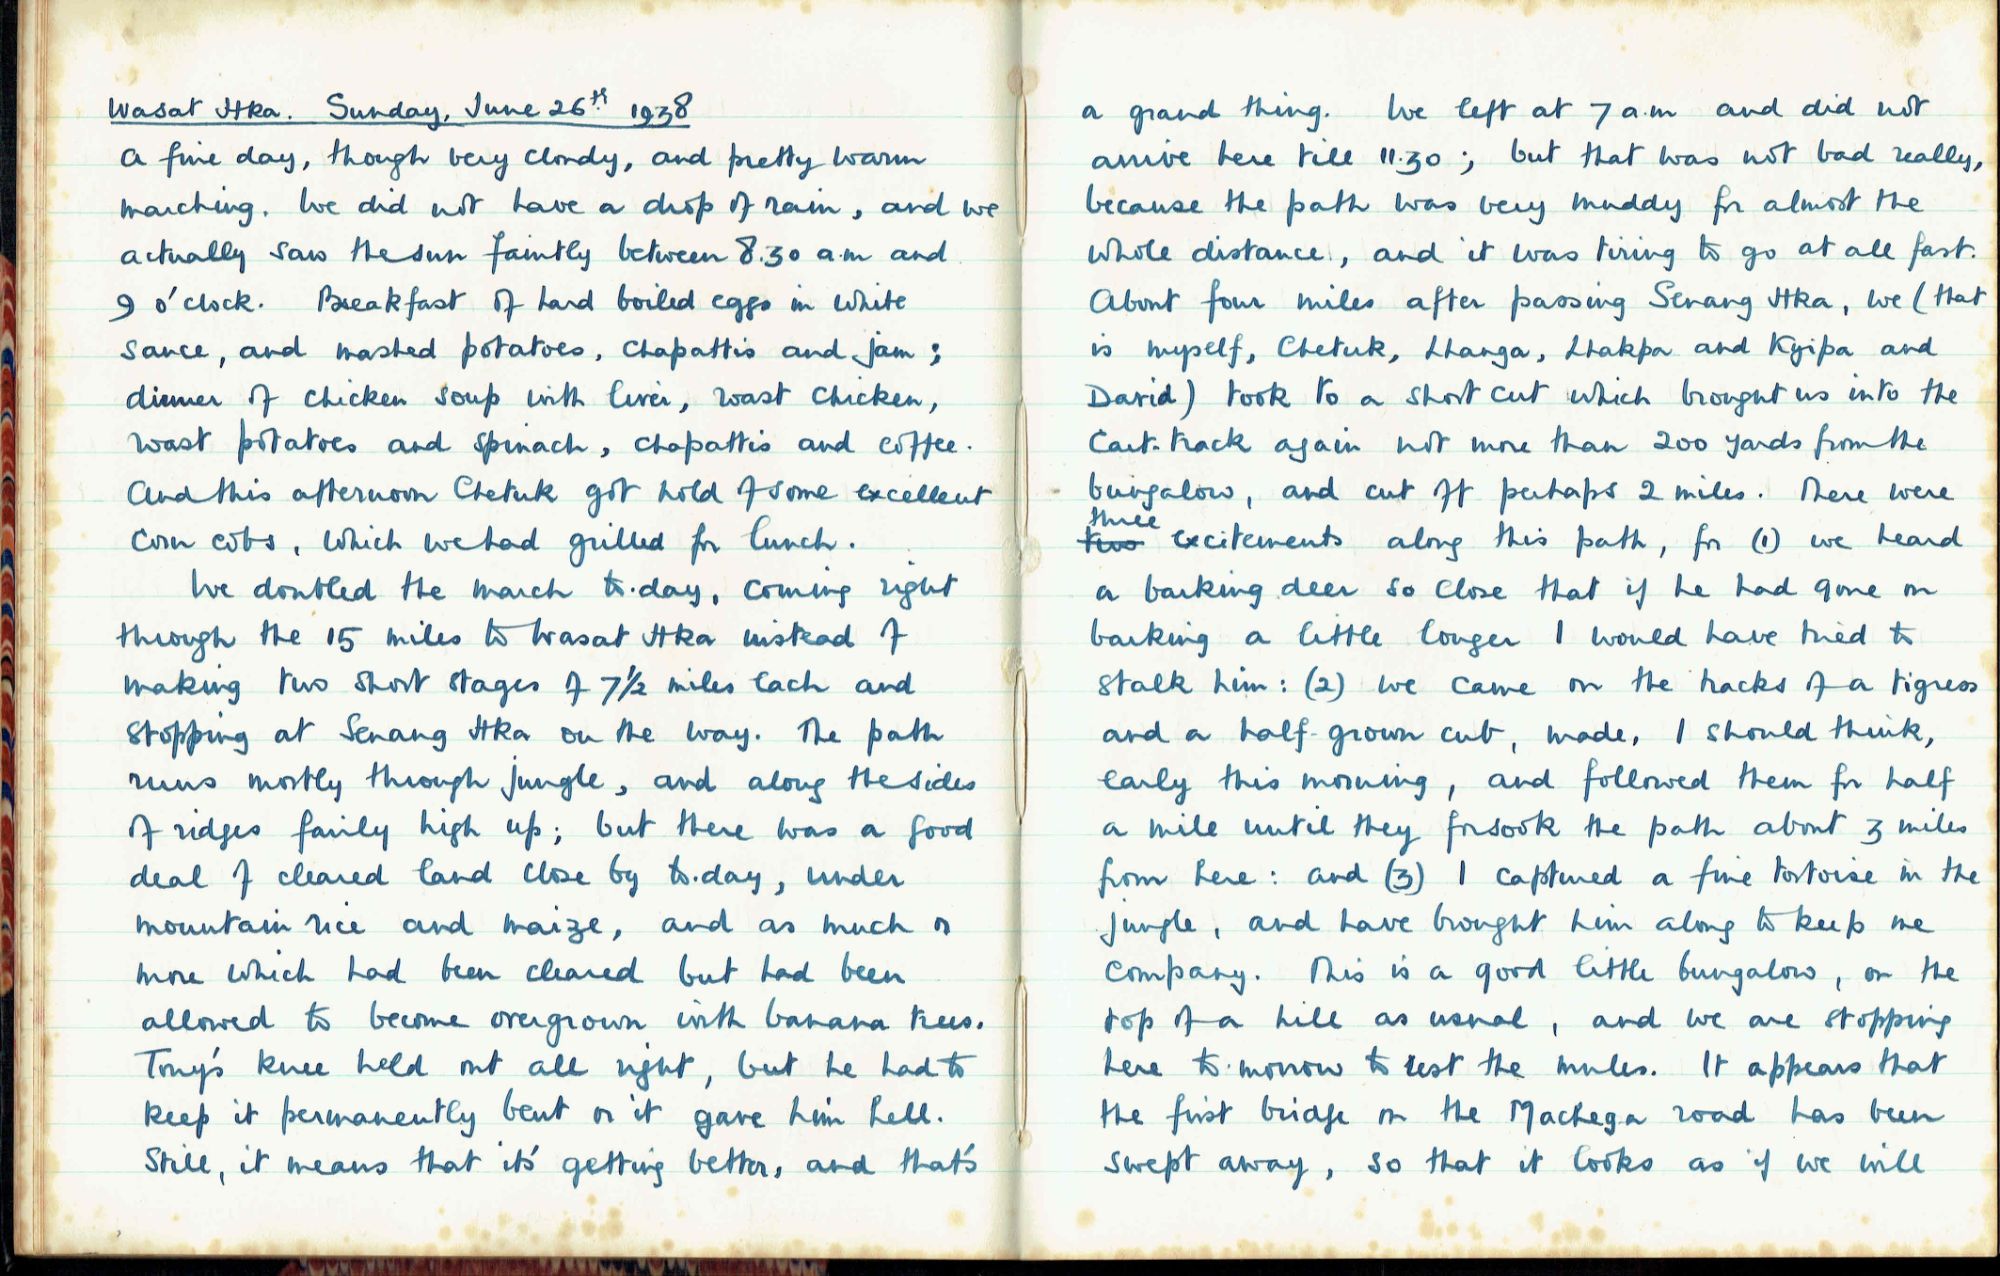 Wasat Hka. Sunday, June 26th 1938
A fine day, though very cloudy, and pretty warm
marching. We did not have a drop of rain, and we
actually saw the sun faintly between 8.30 a.m and
9 o'clock. Breakfast of hard boiled eggs in white
sauce, and mashed potatoes, chapattis and jam;
dinner of chicken soup with liver, roast chicken,
roast potatoes and spinach, chapattis and coffee.
And this afternoon Chetuk got hold of some excellent
corn cobs, which we had grilled for lunch.
We doubled the march to-day, coming right
through the 15 miles to Wasat Hka instead of
making two short stages of 7½ miles each and
stopping at Senang Hka on the way. The path
runs mostly through jungle, and along the sides
of ridges fairly high up; but there was a good
deal of cleared land close by to-day, under
mountain rice and maize, and as much or
more which had been cleared but had been
allowed to become overgrown with banana trees.
Tony's knee held out all right, but he had to
keep it permanently bent or it gave him hell.
Still, it means that it's getting better, and that's
a grand thing. We left at 7 a.m and did not
arrive here till 11.30; but that was not bad really,
because the path was very muddy for almost the
whole distance, and it was tiring to go at all fast.
About four miles after passing Senang Hka, we (that
is myself, Chetuk, Lhanga, Lhakpa and Kyipa and
David) took to a short cut which brought us into the
cart-track again not more than 200 yards from the
bungalow, and cut off perhaps 2 miles. There were
three
two excitements along this path, for (1) we heard
a barking deer so close that if he had gone on
barking a little longer I would have tried to
stalk him: (2) we came on the tracks of a tigress
and a half-grown cub, made, I should think,
early this morning, and followed them for half
a mile until they forsook the path about 3 miles
from here: and (3) I captured a fine tortoise in the
jungle, and have brought him along to keep me
company. This is a good little bungalow, on the
top of a hill as usual, and we are stopping
here to-morrow to rest the mules. It appears that
the first bridge on the Machega road has been
swept away, so that it looks as if we will